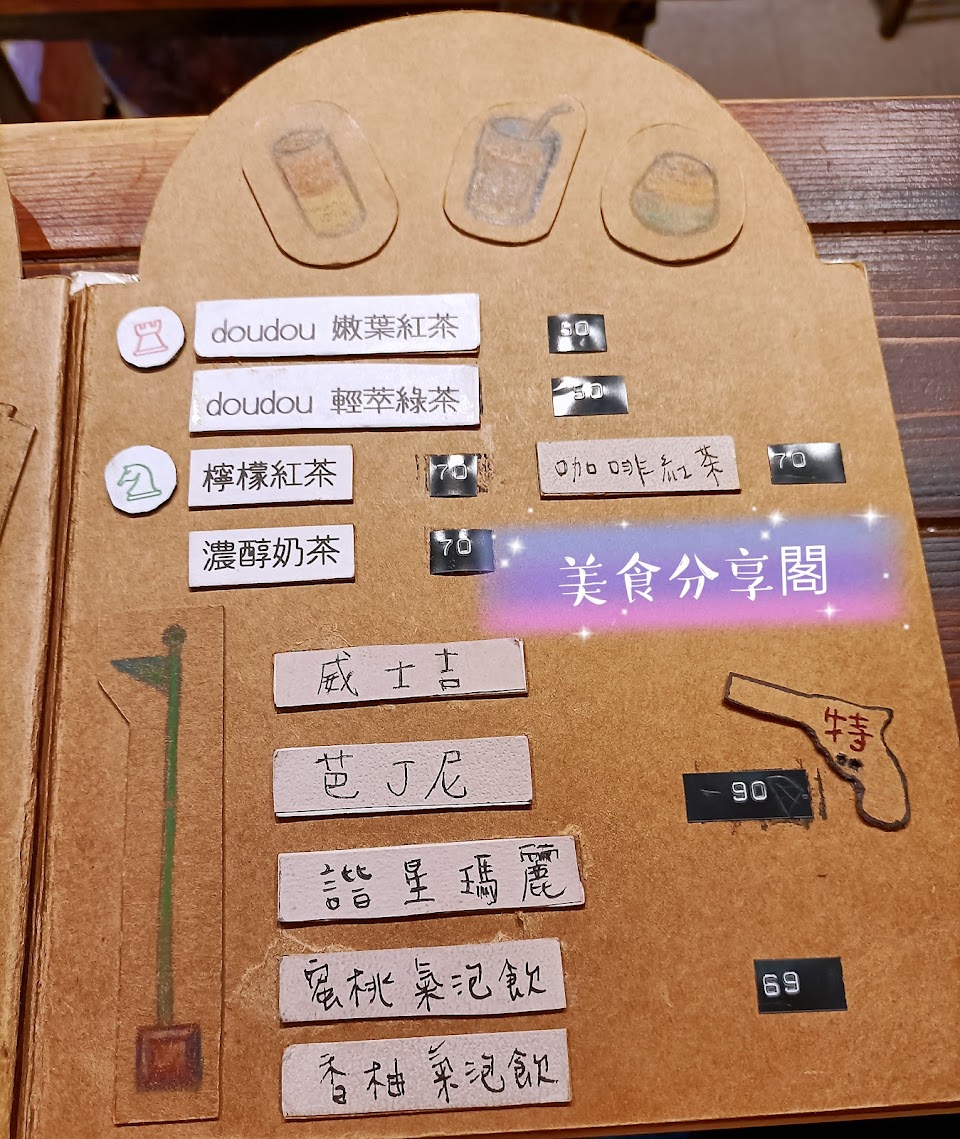 doudou 嫩葉紅茶 50
doudou 輕萃綠茶 50
檸檬紅茶 70 咖啡紅茶 70
濃醇奶茶 70
美食分享閣
威士吉
芭丁尼
特
90
諧星瑪麗
蜜桃氣泡飲
69
香柚氣泡飲